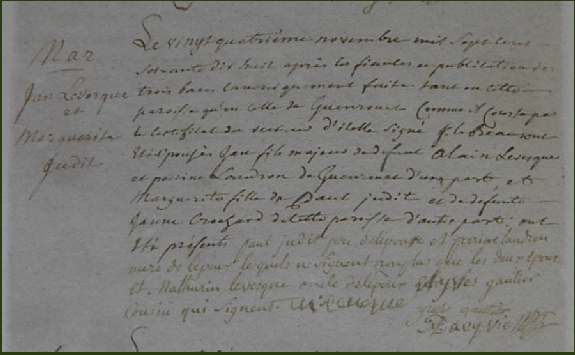 Mar
Jan Levesque
et
Marguerite
Judit
Le vingt quatrième novembre mil sept cens
soixante dix huit après les fiancles et publication des
trois bans canoniquement faite tant en cette
paroisse qu'en celle de Guenrouet comme il conste par
le certificat du recteur d'icelle signé
été épousés Jan fils majeur de defunt Alain Levesque
et perrine Landron de Guenrouet d'une part, et
Marguerite fille de Paul judit et de defunte
Janne Crochard de cette paroisse d'autre part; ont
été présents paul judit pere de lepouse et perine landron
mere de lepoux lequels ne signent non plus que les deux epoux
et Mathurin levesque oncle de lepoux gautier
cousin qui signent.
gautier